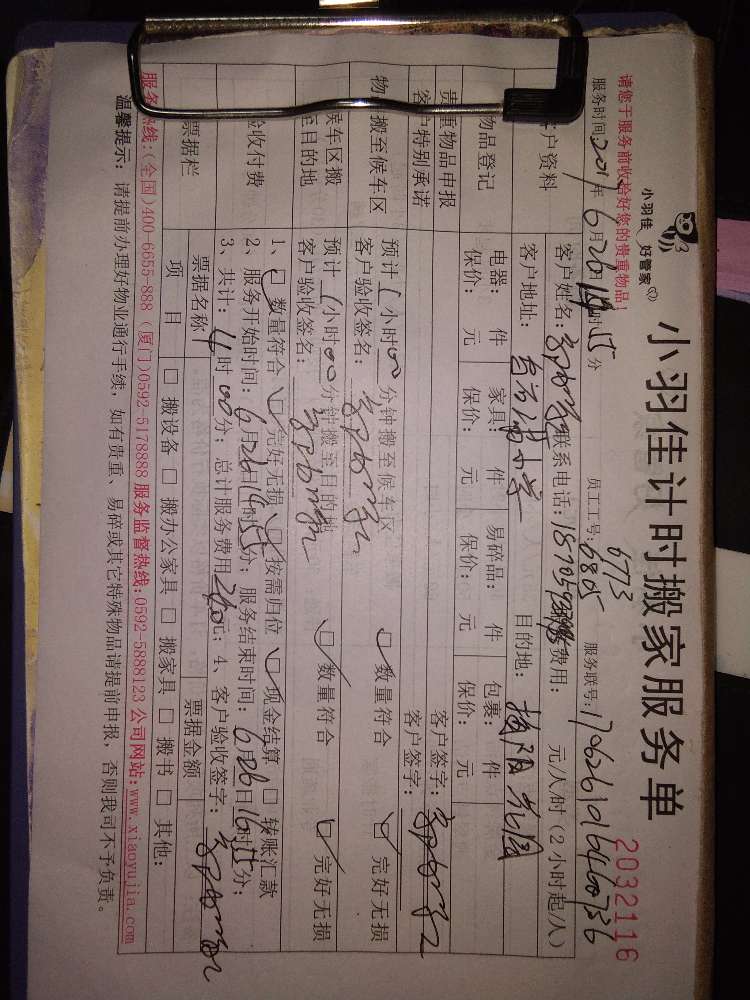 小羽佳 好管家
小羽佳计时搬家服务单
2032116
请您于服务前收拾好您的贵重物品!
服务时间:2017年6月26日14时15分 员工工号: 6773 6805 服务联号:
客户资料
客户姓名: 联系电话: 费用: 元/人/时(2小时起/人)
客户地址: 目的地:
物品登记
电器: 件 家具: 件 易碎品: 件 包裹: 件
保价: 元 保价: 元 保价: 元 保价: 元
贵重物品申报 客户签字:
客户特别承诺 客户签字:
物品搬至候车区
预计1小时00分钟搬至候车区 ☑数量符合 ☑完好无损
客户验收签名:
候车区搬至目的地
预计1小时00分钟搬至目的地 ☑数量符合 ☑完好无损
客户验收签名:
验收付费
1、☑数量符合 ☑完好无损 ☑按需归位 ☑现金结算 □转账汇款
2、服务开始时间:6月26日14时15分; 服务结束时间:6月26日16时15分;
3、共计:4时00分; 总计服务费用240元; 4、客户验收签字:
票据栏
票据名称 票据金额
项目 □搬设备 □搬办公家具 □搬家具 □搬书 □其他:
服务热线:(全国)400-6655-888 (厦门)0592-5178888 服务监督热线:0592-5888123 公司网站:www.xiaoyujia.com
温馨提示: 请提前办理好物业通行手续,如有贵重、易碎或其它特殊物品请提前申报,否则我司不予负责。